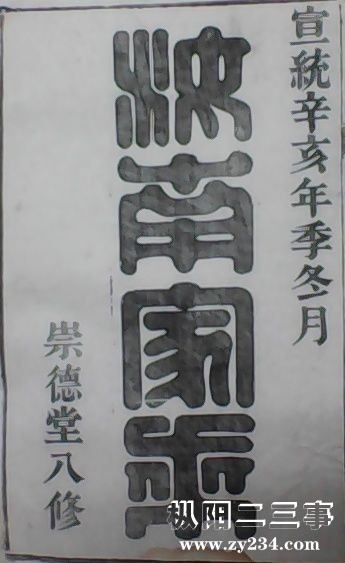 宣統辛亥年季冬月
汝南家乘
崇德堂八修
枞阳二三事
www.zy234.com